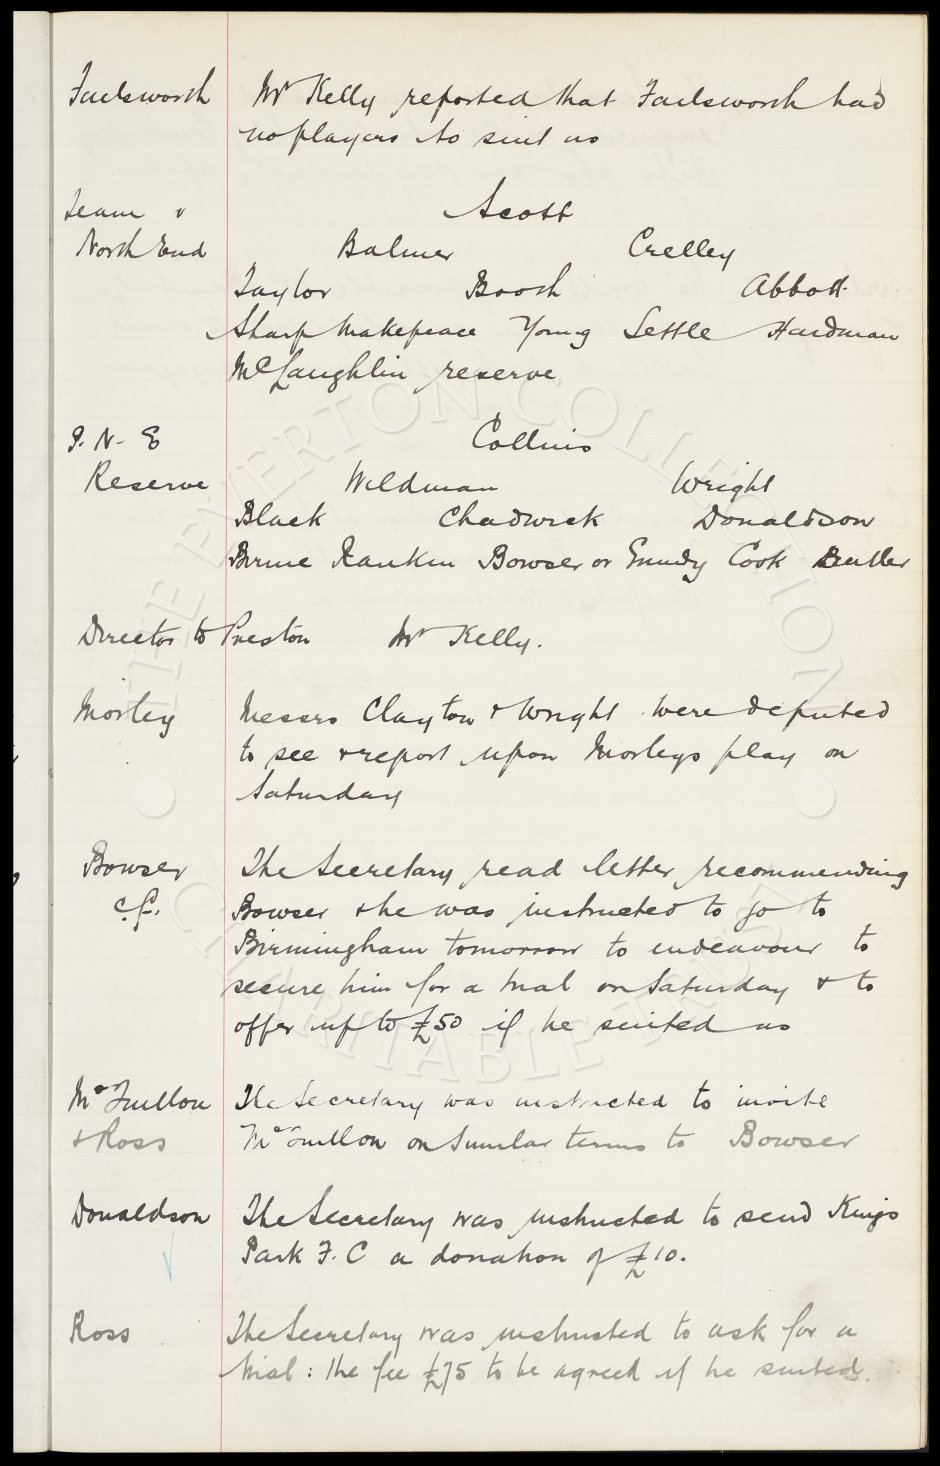 Failsworth Mr Kelly reported that Failsworth had
no players to suit us
Team v Scott
North End Balmer Crelley
Taylor Booth Abbott
Sharp Makepeace Young Settle Hardman
McLaughlin reserve
P. N. E Collins
Reserve Wildman Wright
Black Chadwick Donaldson
Birnie Rankin Bowser or Grundy Cook Butler
Director to Preston Mr Kelly.
Morley Messrs Clayton & Wright were deputed
to see & report upon Morleys play on
Saturday
Bowser The Secretary read letter recommending
c.f. Bowser & he was instructed to go to
Birmingham tomorrow to endeavour to
secure him for a trial on Saturday & to
offer up to £50 if he suited us
The Secretary was instructed to invite
& Ross on similar terms to Bowser
Donaldson The Secretary was instructed to send Kings
Park F.C a donation of £10.
Ross The Secretary was instructed to ask for a
trial: the fee £75 to be agreed if he suited.
THE EVERTON COLLECTION
CHARITABLE TRUST